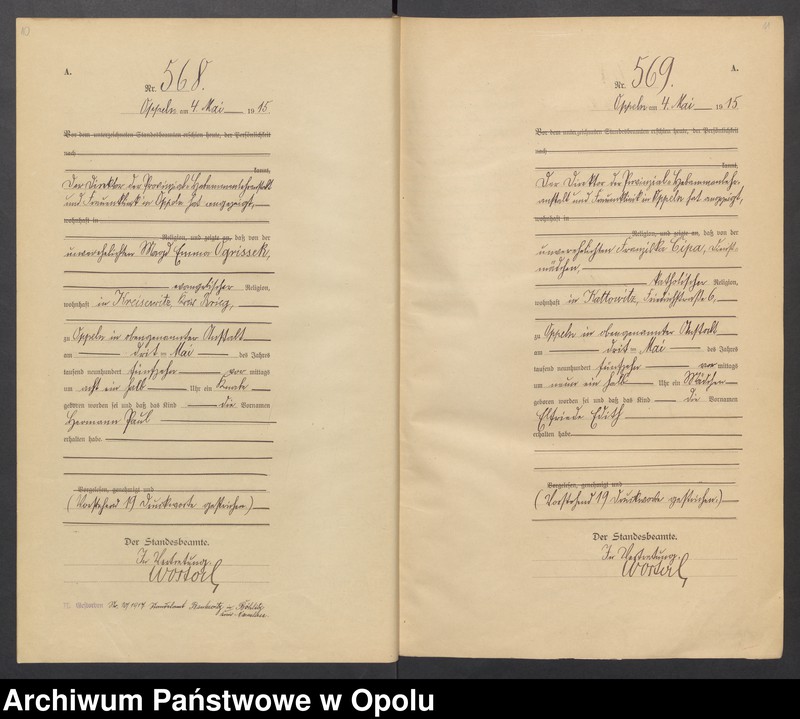 A.
Nr. 568.
Oppeln am 4. Mai 19 15.
Vor dem unterzeichneten Standesbeamten erschien heute, der Persönlichkeit
nach
kannt,
Der Direktor der Provinzial-Hebammenlehranstalt
und Frauenklinik in Oppeln hat angezeigt,
wohnhaft in
Religion, und zeigte an, daß von der
unverehelichten Magd Emma Ogrissek,
evangelischer Religion,
wohnhaft in Kreisewitz, Kreis Brieg,
zu Oppeln in obengenannter Anstalt
am drit= Mai des Jahres
tausend neunhundert fünfzehn vor mittags
um acht ein halb Uhr ein Knabe
geboren worden sei und daß das Kind die Vornamen
Hermann Paul
erhalten habe.
Vorgelesen, genehmigt und
(Vorstehend 19 Druckworte gestrichen.)
Der Standesbeamte.
In Vertretung.
Gestorben Nr. 1917 Standesamt
A.
Nr. 569.
Oppeln am 4. Mai 19 15.
Vor dem unterzeichneten Standesbeamten erschien heute, der Persönlichkeit
nach
kannt,
Der Direktor der Provinzial-Hebammenlehr-
anstalt und Frauenklinik in Oppeln hat angezeigt,
wohnhaft in
Religion, und zeigte an, daß von der
unverehelichten Franziska Cipa, Dienst-
mädchen,
katholischer Religion,
wohnhaft in Kattowitz, Friedrichstraße 6,
zu Oppeln in obengenannter Anstalt
am drit= Mai des Jahres
tausend neunhundert fünfzehn vor mittags
um neun ein halb Uhr ein Mädchen
geboren worden sei und daß das Kind die Vornamen
Elfriede Edith
erhalten habe.
Vorgelesen, genehmigt und
(Vorstehend 19 Druckworte gestrichen.)
Der Standesbeamte.
In Vertretung.
Archiwum Państwowe w Opolu